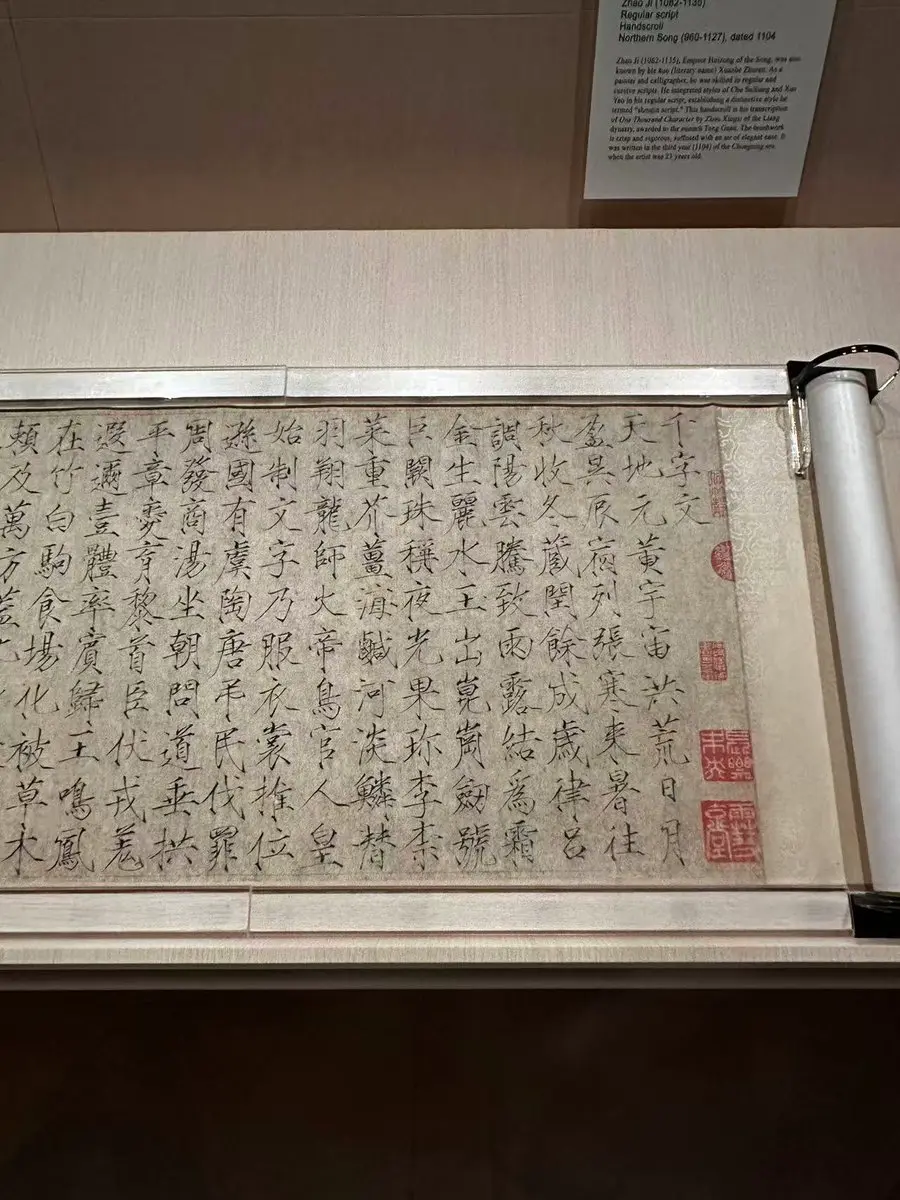 Zhao Ji (1082-1135)
Regular script
Handscroll
Northern Song (960-1127), dated 1104
Zhao Ji (1082-1135), Emperor Huizong of the Song, was also
known by his hao (literary name) Xuanhe Zhuren. As a
painter and calligrapher, he was skilled in regular and
cursive scripts. He integrated styles of Chu Suiliang and Xue
Yao in his regular script, establishing a distinctive style he
termed "shoujin script." This handscroll is his transcription
of One Thousand Character by Zhou Xingsi of the Liang
dynasty, awarded to the eunuch Tong Guan. The brushwork
is crisp and vigorous, suffused with an air of elegant ease. It
was written in the third year (1104) of the Chongning era
when the artist was 23 years old.
千字文
天地元黃宇宙洪荒日月
盈昃辰宿列張寒來暑往
秋收冬藏閏餘成歲律呂
調陽雲騰致雨露結為霜
金生麗水玉出崑崗劒號
巨闕珠稱夜光果珍李柰
菜重芥薑海鹹河淡鱗潛
羽翔龍師火帝鳥官人皇
始制文字乃服衣裳推位
遜國有虞陶唐弔民伐罪
周發商湯坐朝問道垂拱
平章愛育黎首臣伏戎羌
遐邇壹體率賓歸王鳴鳳
在竹白駒食場化被草木
頼及萬方蓋